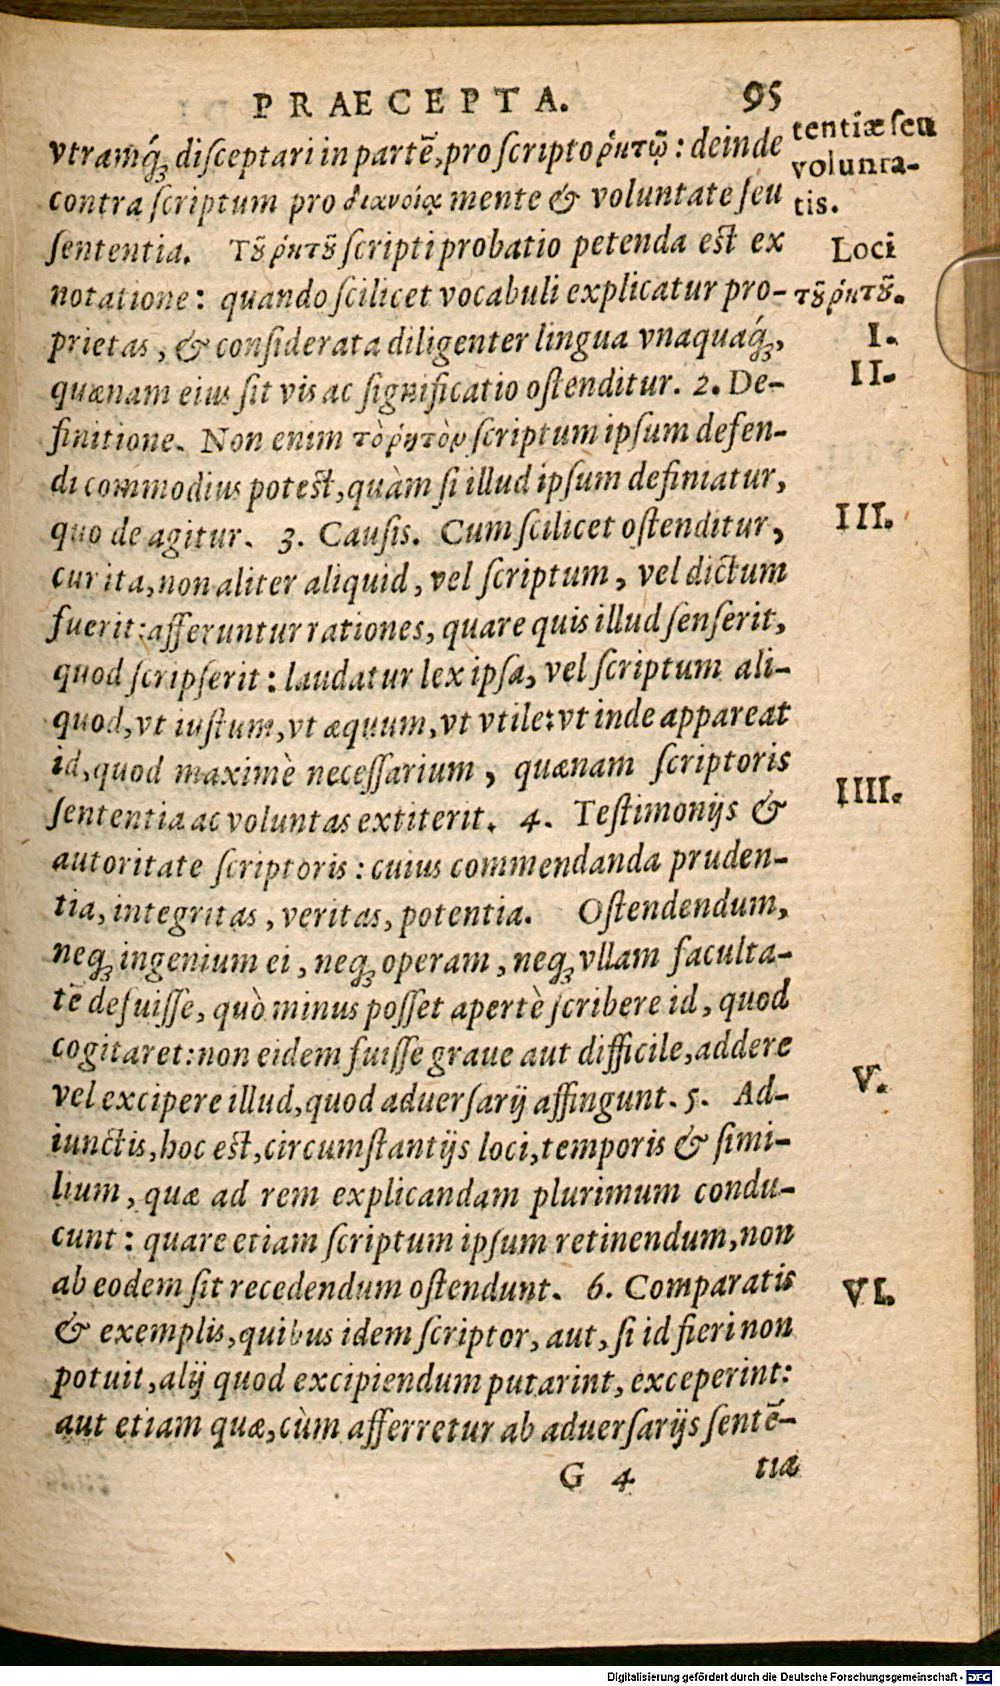 PRAECEPTA. 95
vtramq́ꝫ disceptari in partē, pro scripto ῥητῷ: deinde
contra scriptum pro διανοίᾳ mente & voluntate seu
sententia. Τȣ̃ ῥητȣ̃ scripti probatio petenda est ex
notatione: quando scilicet vocabuli explicatur pro-
prietas, & considerata diligenter lingua vnaquaq́ꝫ,
quænam eius sit vis ac significatio ostenditur. 2. De-
finitione. Non enim τὸ ῥητὸν scriptum ipsum defen-
di commodius potest, quàm si illud ipsum definiatur,
quo de agitur. 3. Causis. Cum scilicet ostenditur,
cur ita, non aliter aliquid, vel scriptum, vel dictum
fuerit: afferuntur rationes, quare quis illud senserit,
quod scripserit: laudatur lex ipsa, vel scriptum ali-
quod, vt iustum, vt æquum, vt vtile: vt inde appareat
id, quod maximè necessarium, quænam scriptoris
sententia ac voluntas extiterit. 4. Testimonijs &
autoritate scriptoris: cuius commendanda pruden-
tia, integritas, veritas, potentia. Ostendendum,
neqꝫ ingenium ei, neqꝫ operam, neqꝫ vllam faculta-
tē defuisse, quò minus posset apertè scribere id, quod
cogitaret: non eidem fuisse graue aut difficile, addere
vel excipere illud, quod aduersarij affingunt. 5. Ad-
iunctis, hoc est, circumstantijs loci, temporis & simi-
lium, quæ ad rem explicandam plurimum condu-
cunt: quare etiam scriptum ipsum retinendum, non
ab eodem sit recedendum ostendunt. 6. Comparatis
& exemplis, quibus idem scriptor, aut, si id fieri non
potuit, alij quod excipiendum putarint, exceperint:
aut etiam quæ, cùm afferretur ab aduersarijs sentē-
G 4 tiæ
tentiæ seu
volunta-
tis.
Loci
τȣ̃ ῥητȣ̃.
I.
II.
III.
IIII.
V.
VI.
Digitalisierung gefördert durch die Deutsche Forschungsgemeinschaft - DFG